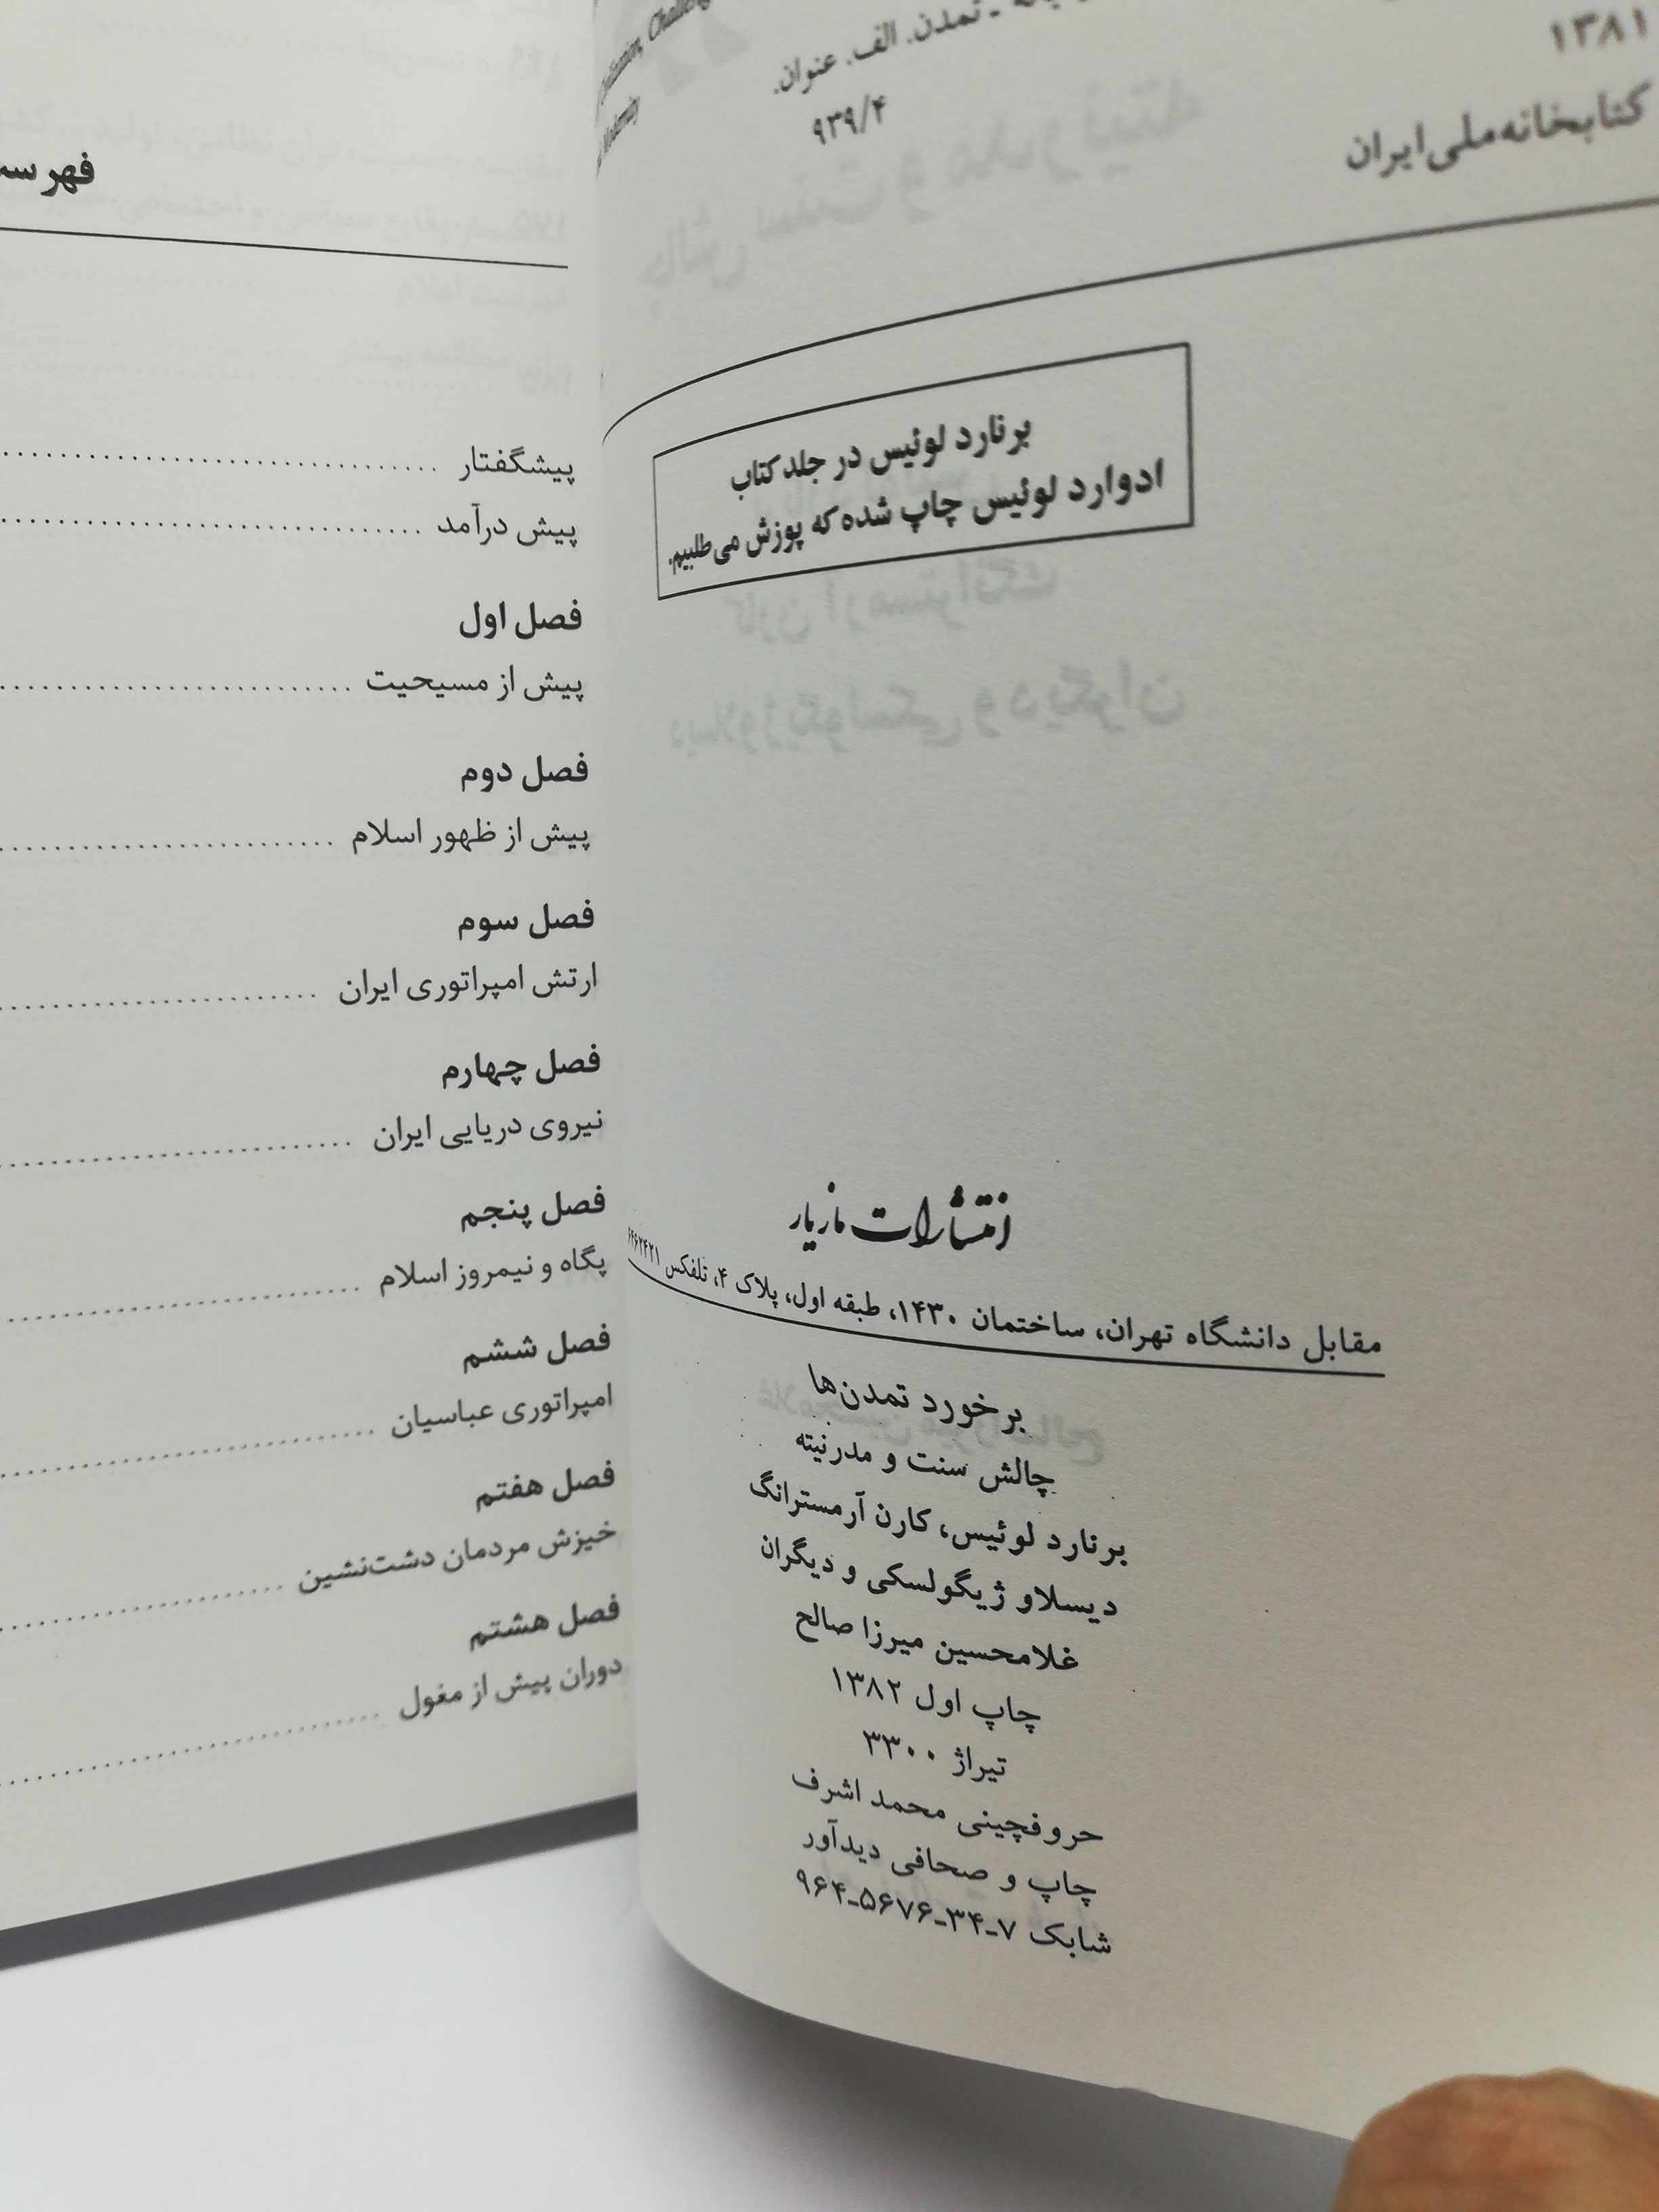 ۱۳۸۱
تمدن. الف. عنوان.
۹۳۹/۴
کتابخانه ملی ایران
برنارد لوئیس در جلد کتاب
ادوارد لوئیس چاپ شده که پوزش می‌طلبیم.
انتشارات مازیار
مقابل دانشگاه تهران، ساختمان ۱۴۳۰، طبقه اول، پلاک ۴، تلفکس
برخورد تمدن‌ها
چالش سنت و مدرنیته
برنارد لوئیس، کارن آرمسترانگ
دیسلاو ژیگولسکی و دیگران
غلامحسین میرزا صالح
چاپ اول ۱۳۸۲
تیراژ ۳۳۰۰
حروفچینی محمد اشرف
چاپ و صحافی دیدآور
شابک ۷-۳۴-۵۶۷۶-۹۶۴
پیشگفتار
پیش درآمد
فصل اول
پیش از مسیحیت
فصل دوم
پیش از ظهور اسلام
فصل سوم
ارتش امپراتوری ایران
فصل چهارم
نیروی دریایی ایران
فصل پنجم
پگاه و نیمروز اسلام
فصل ششم
امپراتوری عباسیان
فصل هفتم
خیزش مردمان دشت‌نشین
فصل هشتم
دوران پیش از مغول